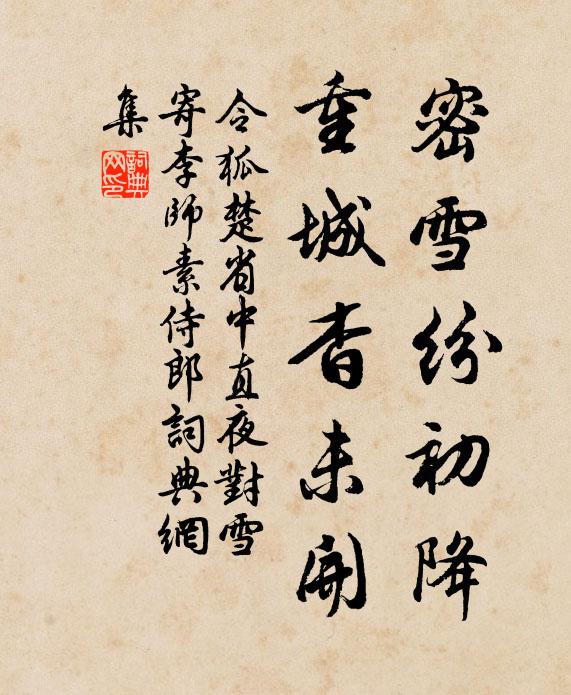 密雪紛初降
重城杳未開
令狐楚省中直夜對雪
寄李師素侍郎詞典網
集
詞典
网印